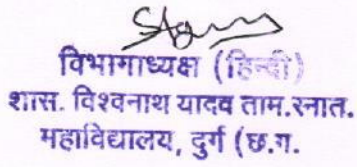 विभागाध्यक्ष (हिन्दी)
शास. विश्वनाथ यादव ताम.स्नात.
महाविद्यालय, दुर्ग (छ.ग.